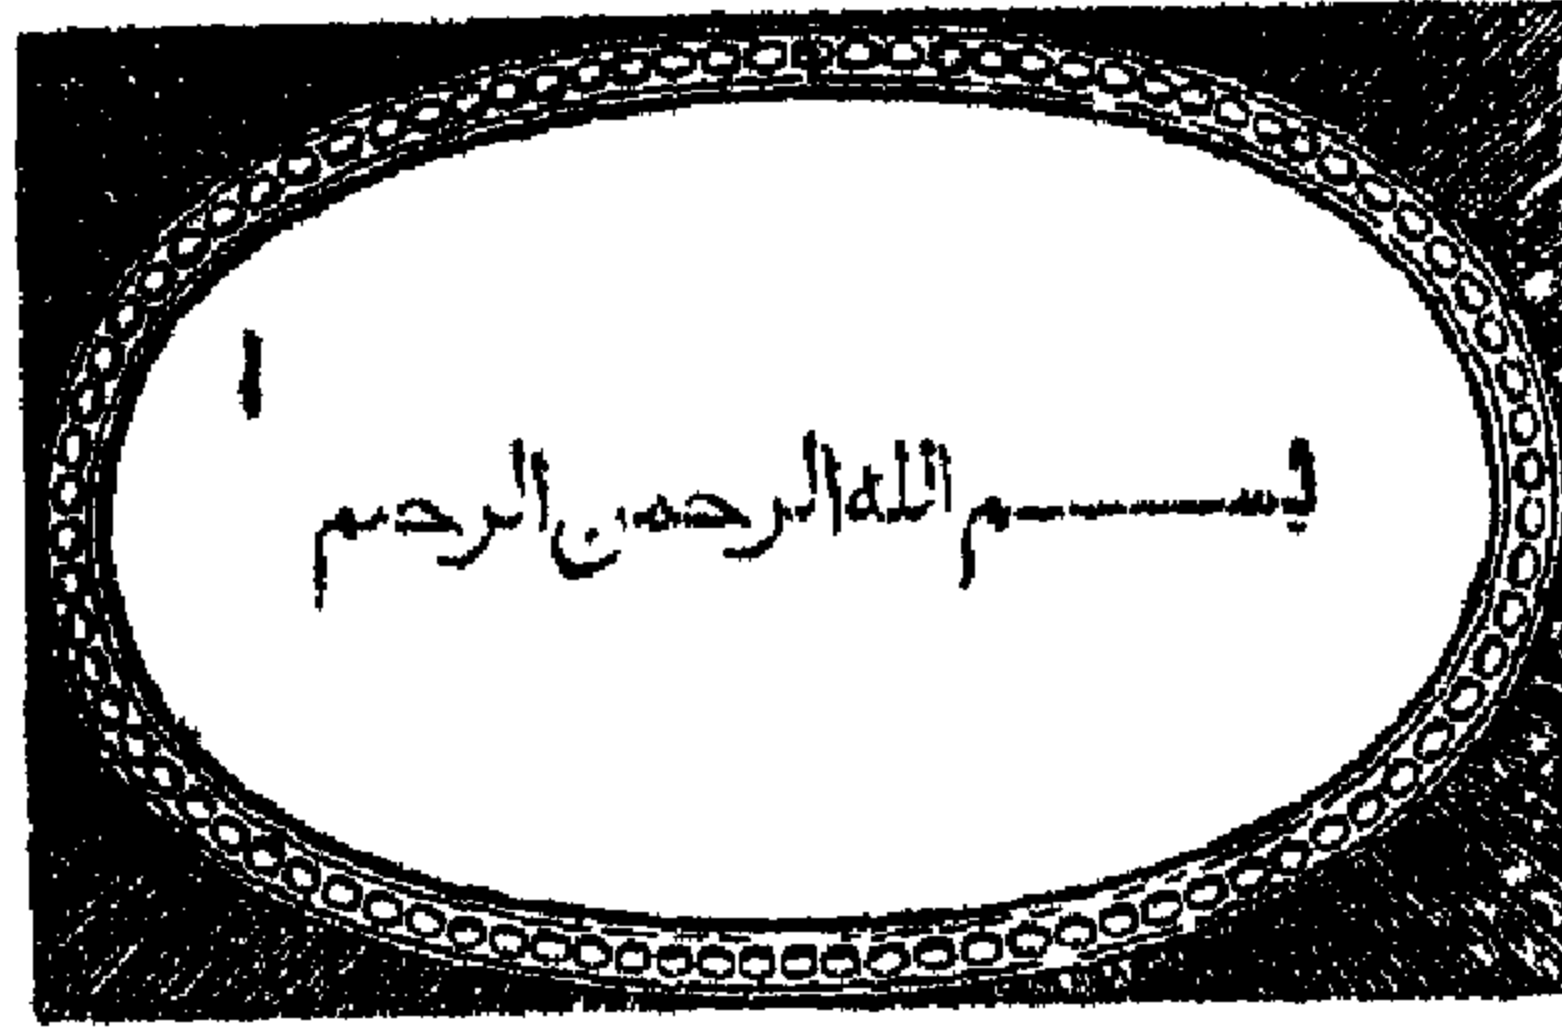 ١
بسم الله الرحمن الرحيم